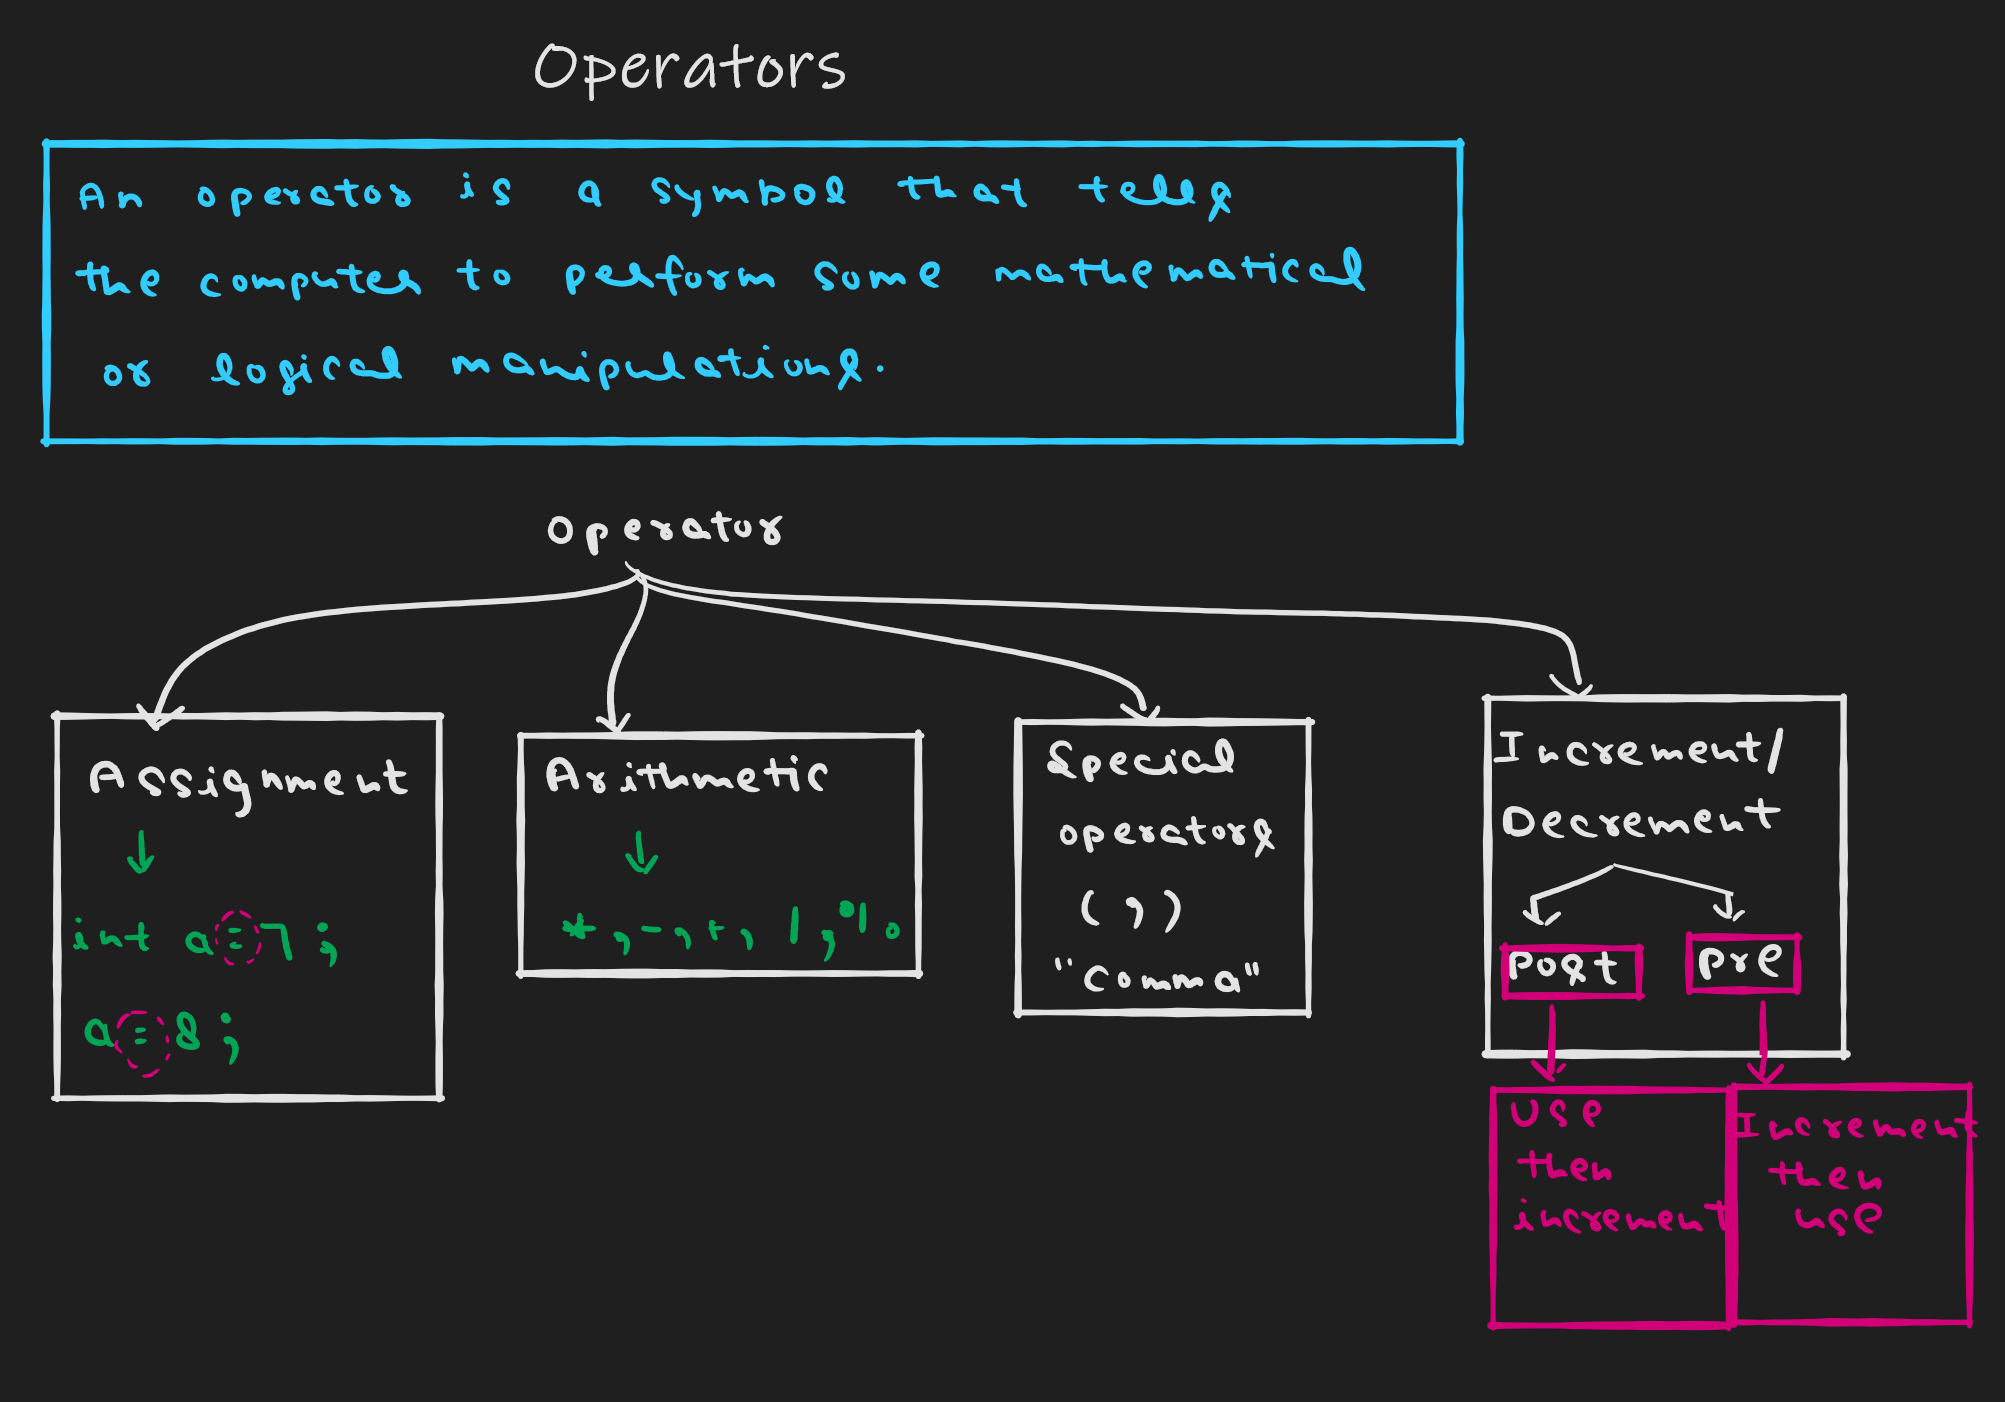 Operators
An operator is a symbol that tells
the computer to perform some mathematical
or logical manipulations.
Operator
Assignment
int a=7;
a=8;
Arithmetic
*,-,+, /,%
Special
operators
(,)
"Comma"
Increment/
Decrement
Post Pre
Use
then
increment
Increment
then
use